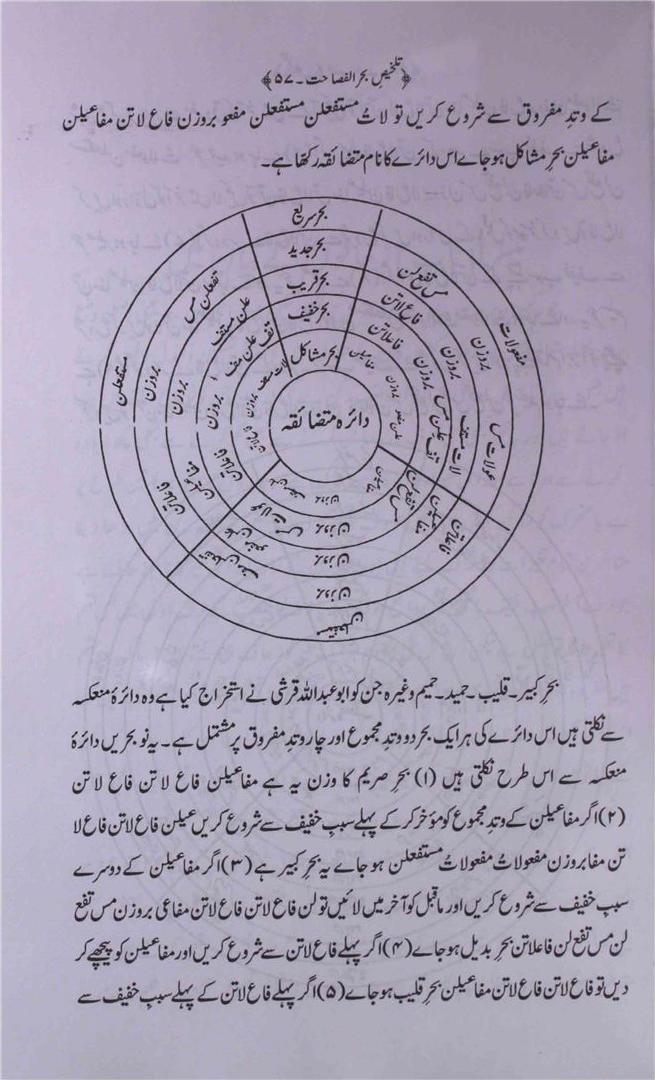 ﴿تلخیصِ بحر الفصاحت۔۵۷﴾
کے وتدِ مفروق سے شروع کریں تو لاتُ مستفعلن مستفعلن مفعو بروزن فاع لاتن مفاعیلن
مفاعیلن بحرِ مشاکل ہوجاے اس دائرے کا نام متضائقہ رکھا ہے۔
بحر سریع
بحر جدید
بحر قریب
بحر خفیف
بحر مشاکل
دائرہ متضائقہ
مفعولات
بروزن
مس تفع لن
فاع لاتن
بروزن
فاعلاتن
بروزن
مفاعیلن
بروزن
عولات مس
لات مستفعـ
تف علن مس
فاعلاتن
مفاعیلن
مس تفع لن
مستفعلن
بروزن
بروزن
بروزن
بروزن
مستفعلن
بروزن
تفعلن مس
بروزن
علن مستف
بروزن
تف علن مف
فاعلاتن
مفاعیلن
فاعلاتن
بحرِ کبیر۔ قلیب۔ حمید۔ حمیم وغیرہ جن کو ابوعبداللہ قرشی نے استخراج کیا ہے وہ دائرۂ منعکسہ
سے نکلتی ہیں اس دائرے کی ہر ایک بحر دو وتدِ مجموع اور چار وتدِ مفروق پر مشتمل ہے۔ یہ نو بحریں دائرۂ
منعکسہ سے اس طرح نکلتی ہیں (۱) بحرِ صریم کا وزن یہ ہے مفاعیلن فاع لاتن فاع لاتن
(۲) اگر مفاعیلن کے وتدِ مجموع کو مؤخر کرکے پہلے سببِ خفیف سے شروع کریں عیلن فاع لاتن فاع لا
تن مفا بروزن مفعولاتُ مفعولاتُ مستفعلن ہوجاے یہ بحرِ کبیر ہے (۳) اگر مفاعیلن کے دوسرے
سببِ خفیف سے شروع کریں اور ماقبل کو آخر میں لائیں تو لن فاع لاتن فاع لاتن مفاعی بروزن مس تفع
لن مس تفع لن فاعلاتن بحرِ بدیل ہوجاے (۴) اگر پہلے فاع لاتن سے شروع کریں اور مفاعیلن کو پیچھے کر
دیں تو فاع لاتن فاع لاتن مفاعیلن بحرِ قلیب ہوجاے (۵) اگر پہلے فاع لاتن کے پہلے سببِ خفیف سے